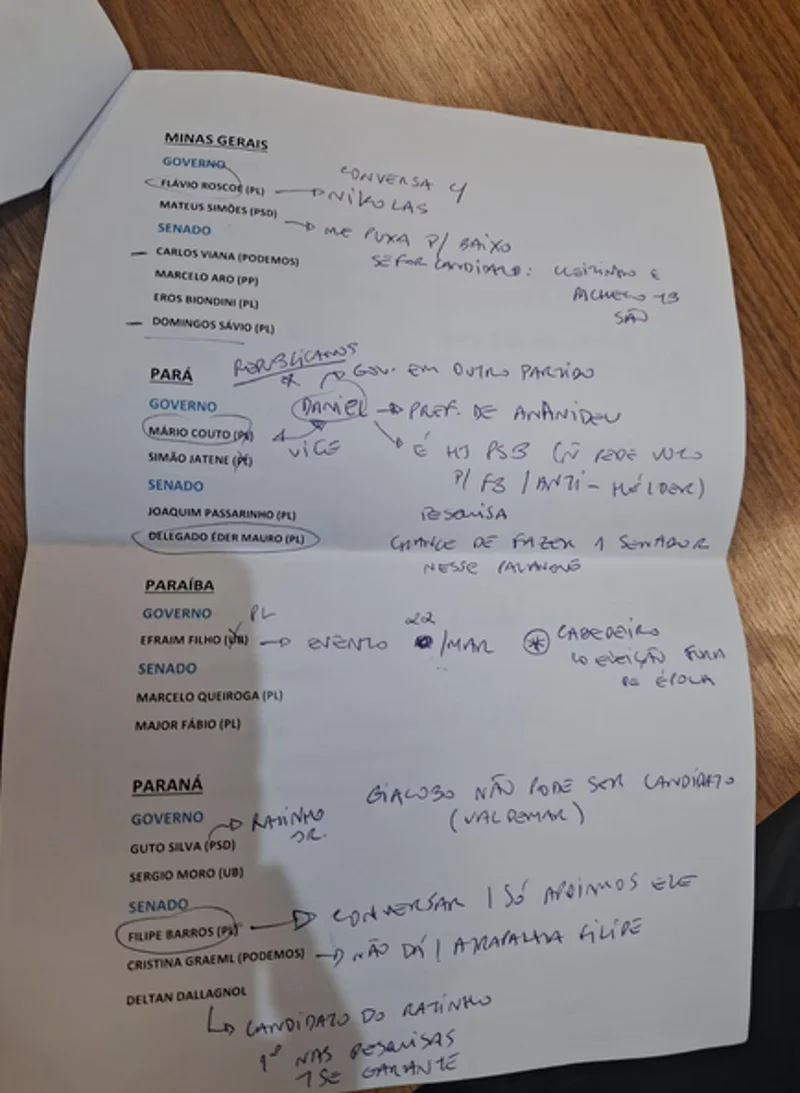 MINAS GERAIS
GOVERNO
FLÁVIO ROSCOE (PL) → CONVERSA C/ NIKOLAS
MATEUS SIMÕES (PSD) → ME PUXA P/ BAIXO
SENADO
SE FOR CANDIDATO: CLEITINHO E
CARLOS VIANA (PODEMOS)
PACHECO 13
MARCELO ARO (PP)
SÃO
EROS BIONDINI (PL)
DOMINGOS SÁVIO (PL)
REPUBLICANOS
PARÁ
GOV. EM OUTRO PARTIDO
GOVERNO
DANIEL → PREF. DE ANANIDEU
MÁRIO COUTO (PL)
VICE
É HJ PSB (Ñ PEDE VOTO
SIMÃO JATENE (PL)
P/ FB / ANTI-HÉLDER)
SENADO
JOAQUIM PASSARINHO (PL)
PESQUISA
DELEGADO ÉDER MAURO (PL)
CHANCE DE FAZER 1 SENADOR
NESSE PALANQUE
PARAÍBA
GOVERNO
PL
EFRAIM FILHO (UB) → EVENTO 22/MAR
* CABEDELO
↳ ELEIÇÃO FORA
DE ÉPOCA
SENADO
MARCELO QUEIROGA (PL)
MAJOR FÁBIO (PL)
PARANÁ
GIACOBO NÃO PODE SER CANDIDATO
(VALDEMAR)
GOVERNO
GUTO SILVA (PSD) → RATINHO JR.
SERGIO MORO (UB)
SENADO
FILIPE BARROS (PL) → CONVERSAR / SÓ APOIAMOS ELE
CRISTINA GRAEML (PODEMOS) → NÃO DÁ / ATRAPALHA FILIPE
DELTAN DALLAGNOL
↳ CANDIDATO DO RATINHO
1º NAS PESQUISAS
SE GARANTE